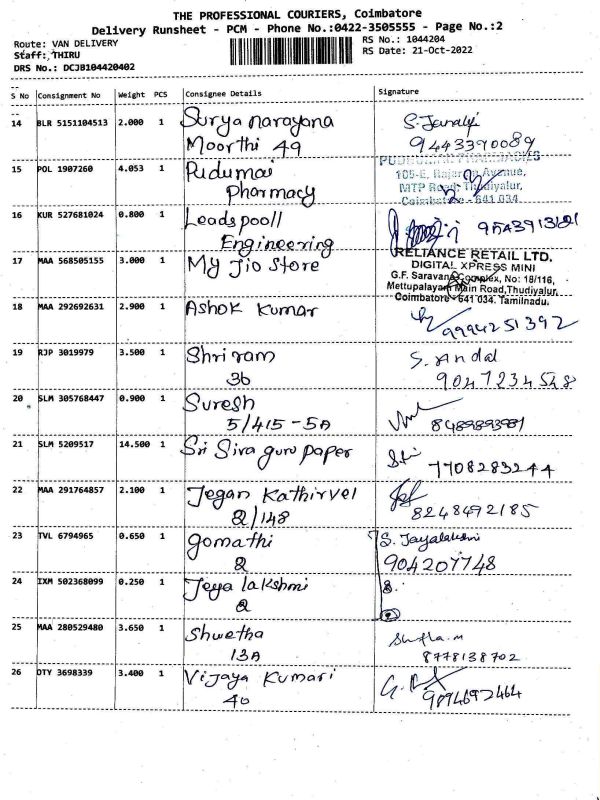 THE PROFESSIONAL COURIERS, Coimbatore
Delivery Runsheet - PCM - Phone No.:0422-3505555 - Page No.:2
Route: VAN DELIVERY
RS No.: 1044204
Staff: THIRU
RS Date: 21-Oct-2022
DRS No.: DCJB104420402
S No Consignment No Weight PCS Consignee Details Signature
14 BLR 5151104513 2.000 1 Surya narayana
Moorthi 49
9443390089
15 POL 1907260 4.053 1 Pudumai
Pharmacy
105-E, Avenue,
MTP Road, Thudiyalur,
Coimbatore - 641 034
16 KUR 527681024 0.800 1 Leadspooll
Engineering
17 MAA 568505155 3.000 1 My Jio Store
RELIANCE RETAIL LTD.
DIGITAL XPRESS MINI
G.F. Saravana Complex, No: 18/116,
Mettupalayam Main Road, Thudiyalur,
Coimbatore - 641 034. Tamilnadu.
18 MAA 292692631 2.900 1 Ashok Kumar
9994251392
19 RJP 3019979 3.500 1 Shri ram
3b
S. Andal
9047234528
20 SLM 305768447 0.900 1 Suresh
5/415-5A
8489893981
21 SLM 5209517 14.500 1 Sri Siva guru paper
7708283244
22 MAA 291764857 2.100 1 Jegan Kathirvel
2/148
8248472185
23 TVL 6794965 0.650 1 gomathi
2
S. Jayalakshmi
904207748
24 IXM 502368099 0.250 1 Jeya lakshmi
2
25 MAA 280529480 3.650 1 Shwetha
13A
8778138702
26 OTY 3698339 3.400 1 Vijaya Kumari
40
9094692464